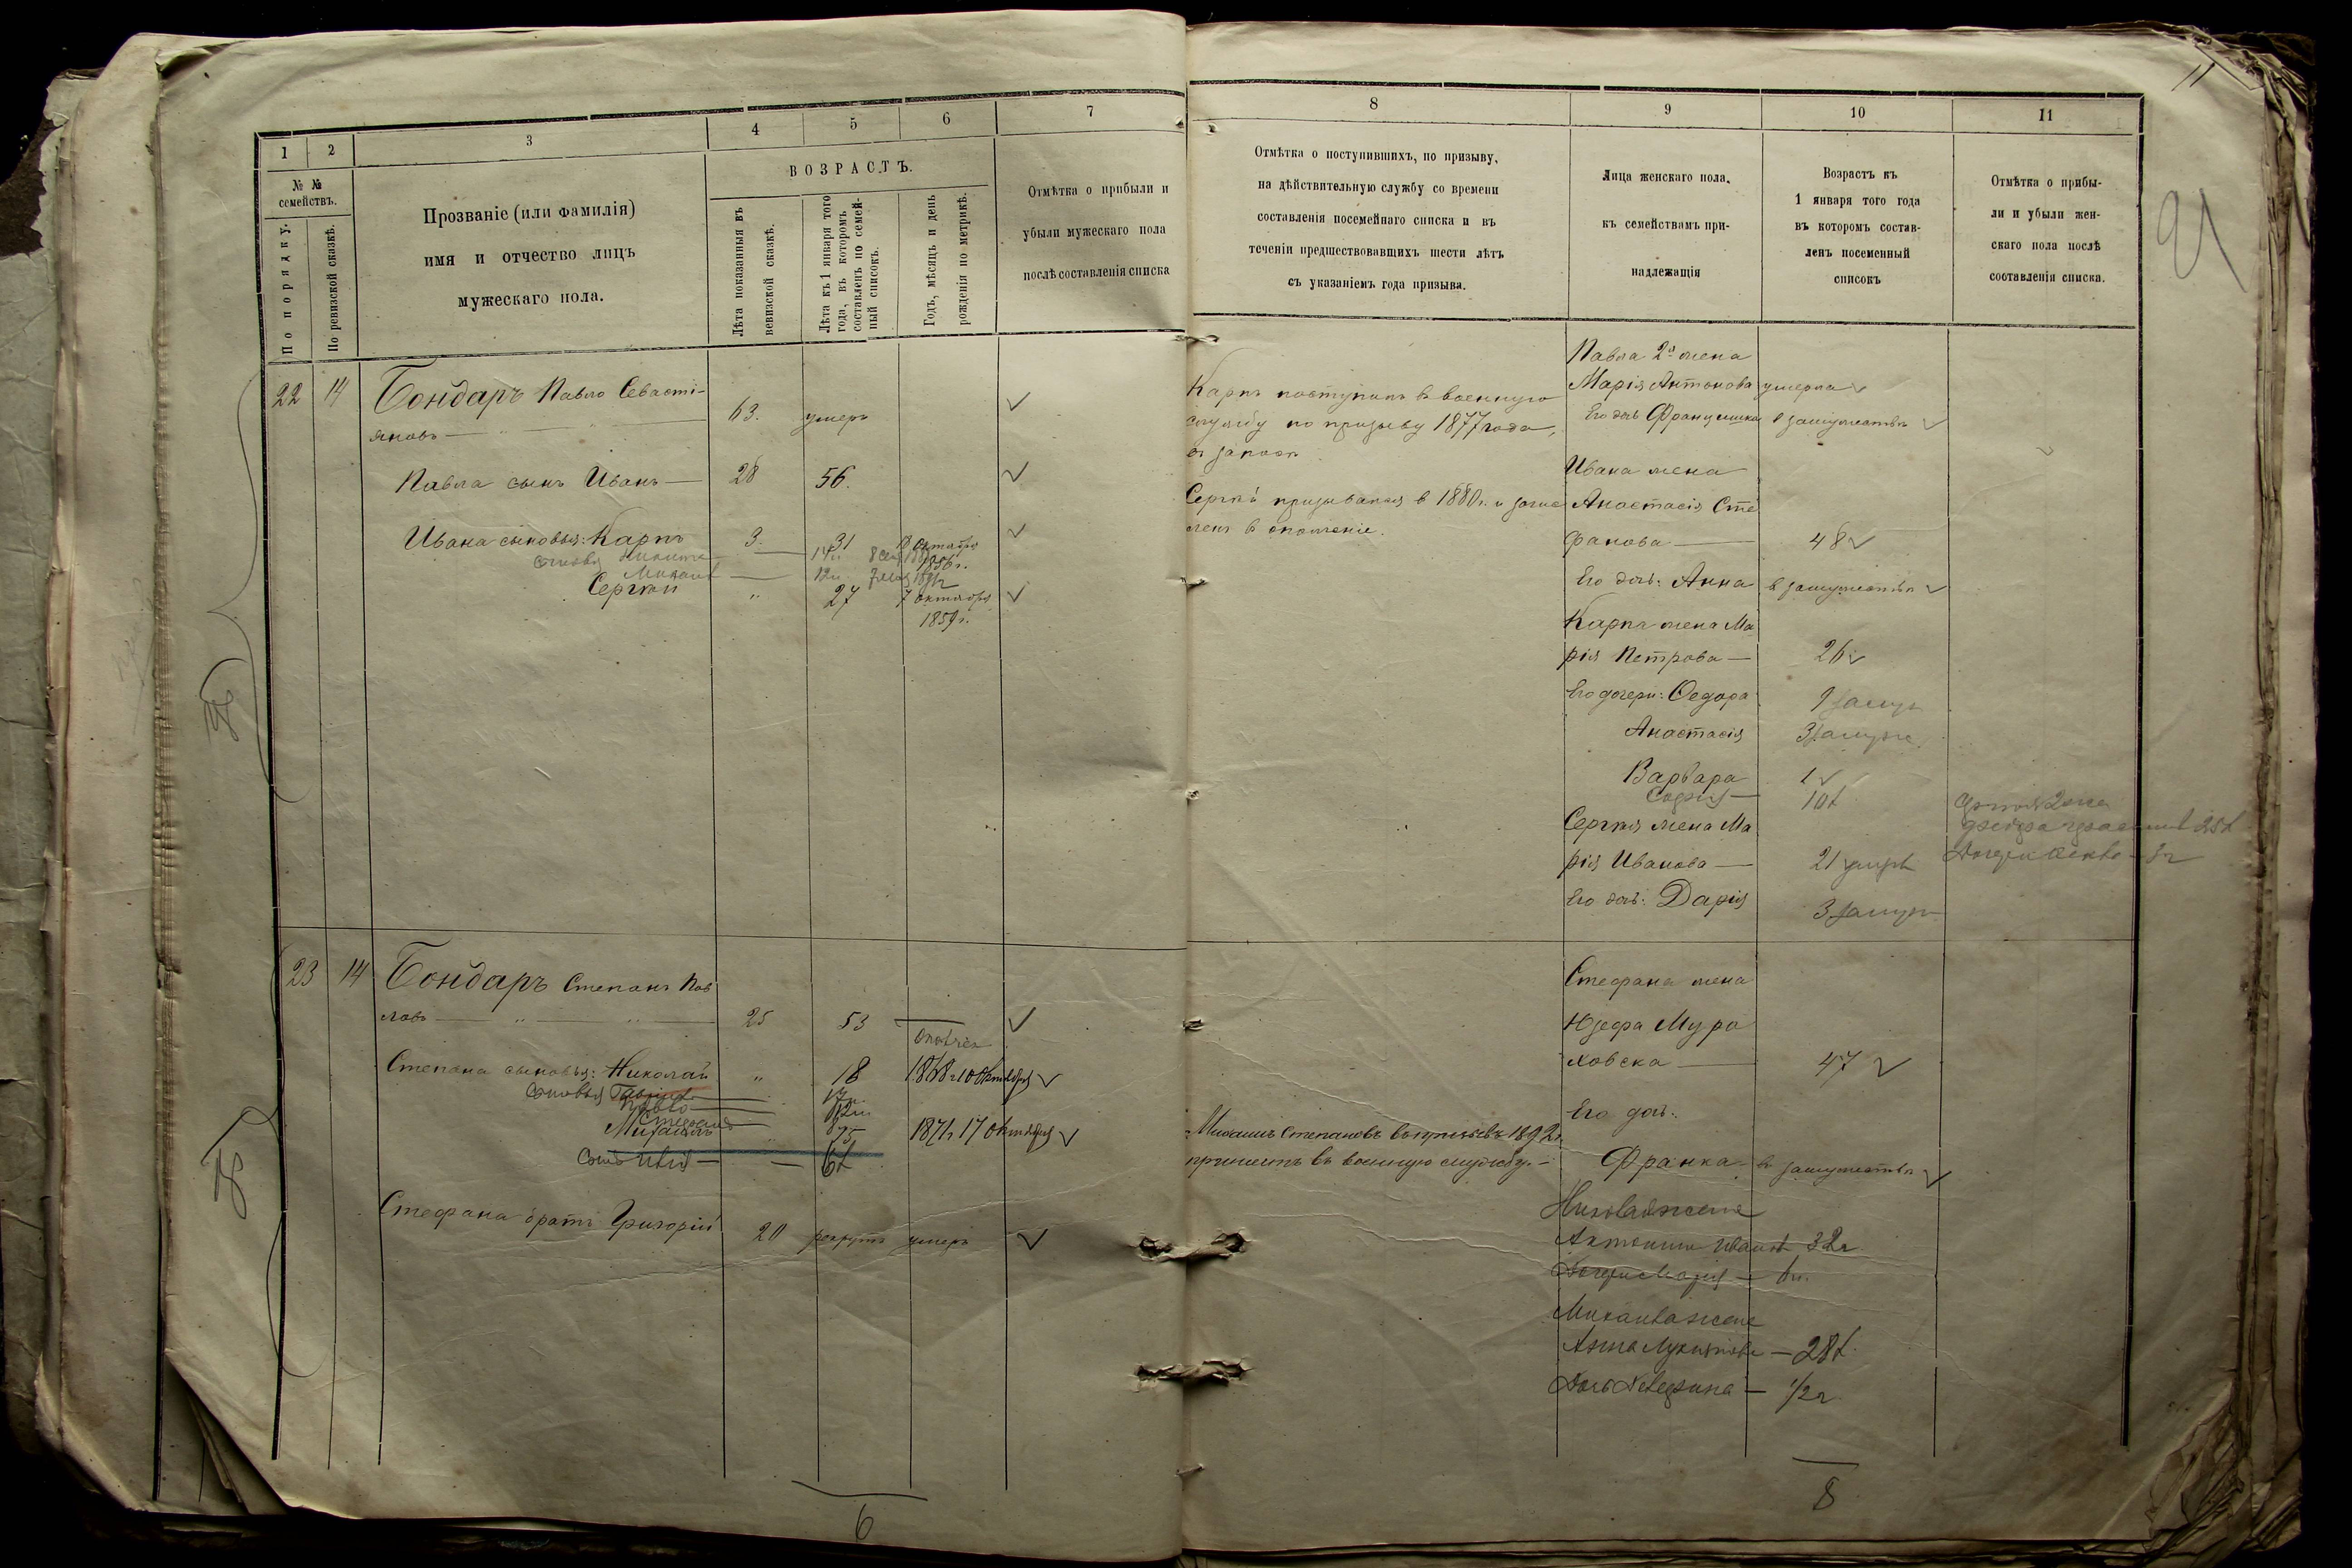 1
2
3
4
5
6
7
№ №
семействъ.
По порядку.
По ревизской сказкѣ.
Прозваніе (или фамилія)
имя и отчество лицъ
мужескаго пола.
ВОЗРАСТЪ.
Лѣта показанныя въ
ревизской сказкѣ.
Лѣта къ 1 января того
года, въ которомъ
составленъ по семей-
ный списокъ.
Годъ, мѣсяцъ и день
рожденія по метрикѣ.
Отмѣтка о прибыли и
убыли мужескаго пола
послѣ составленія списка
22 14 Бондаръ Павло Севасті-
яновъ 63. умеръ
Павла сынъ Иванъ — 28 56.
Ивана сыновья: Карпъ 3. 31 Октября
1856 г.
сыновья Никита
Михаилъ
Сергѣй " 27 7 октября
1859 г.
23 14 Бондаръ Степанъ Пав
ловъ — " — " — 25 53
Степана сыновья: Николай " 18 1868 г 10 Октября
сыновья
Павло
Степанъ
Михаилъ 15 1871 г 17 Октября
Стефана братъ Григорій 20 рекрутъ умеръ
6
8
9
10
11
11
21
Отмѣтка о поступившихъ, по призыву,
на дѣйствительную службу со времени
составленія посемейнаго списка и въ
теченіи предшествовавшихъ шести лѣтъ
съ указаніемъ года призыва.
Лица женскаго пола,
къ семействамъ при-
надлежащія
Возрастъ къ
1 января того года
въ которомъ состав-
ленъ посеменный
списокъ
Отмѣтка о прибы-
ли и убыли жен-
скаго пола послѣ
составленія списка.
Карпъ поступилъ в военную
службу по призыву 1877 года,
в запасѣ
Сергѣй призывался в 1880 г. и зачис
ленъ в ополченіе.
Павла 2я жена
Марія Антонова умерла
Его дочь Францишка в замужествѣ
Ивана жена
Анастасія Сте
фанова — 48
Его дочь: Анна в замужествѣ
Карпа жена Ма
рія Петрова — 26
Его дочери: Ѳеодора замуж
Анастасія 3 замуж
Варвара 1
Софія —
Сергѣя жена Ма
рія Иванова — 21
Его дочь: Дарія 3 замуж
Стефана жена
Юзефа Мура
ховска — 47
Его дочь:
Франка в замужествѣ
Михаилъ Степановъ въ призывъ 1892 г.
принятъ въ военную службу. —
Николая жена
Антонина Иванов 32
Дочь Марія —
Михаила жена
Анна — 28
Дочь — 1/2 г.
8